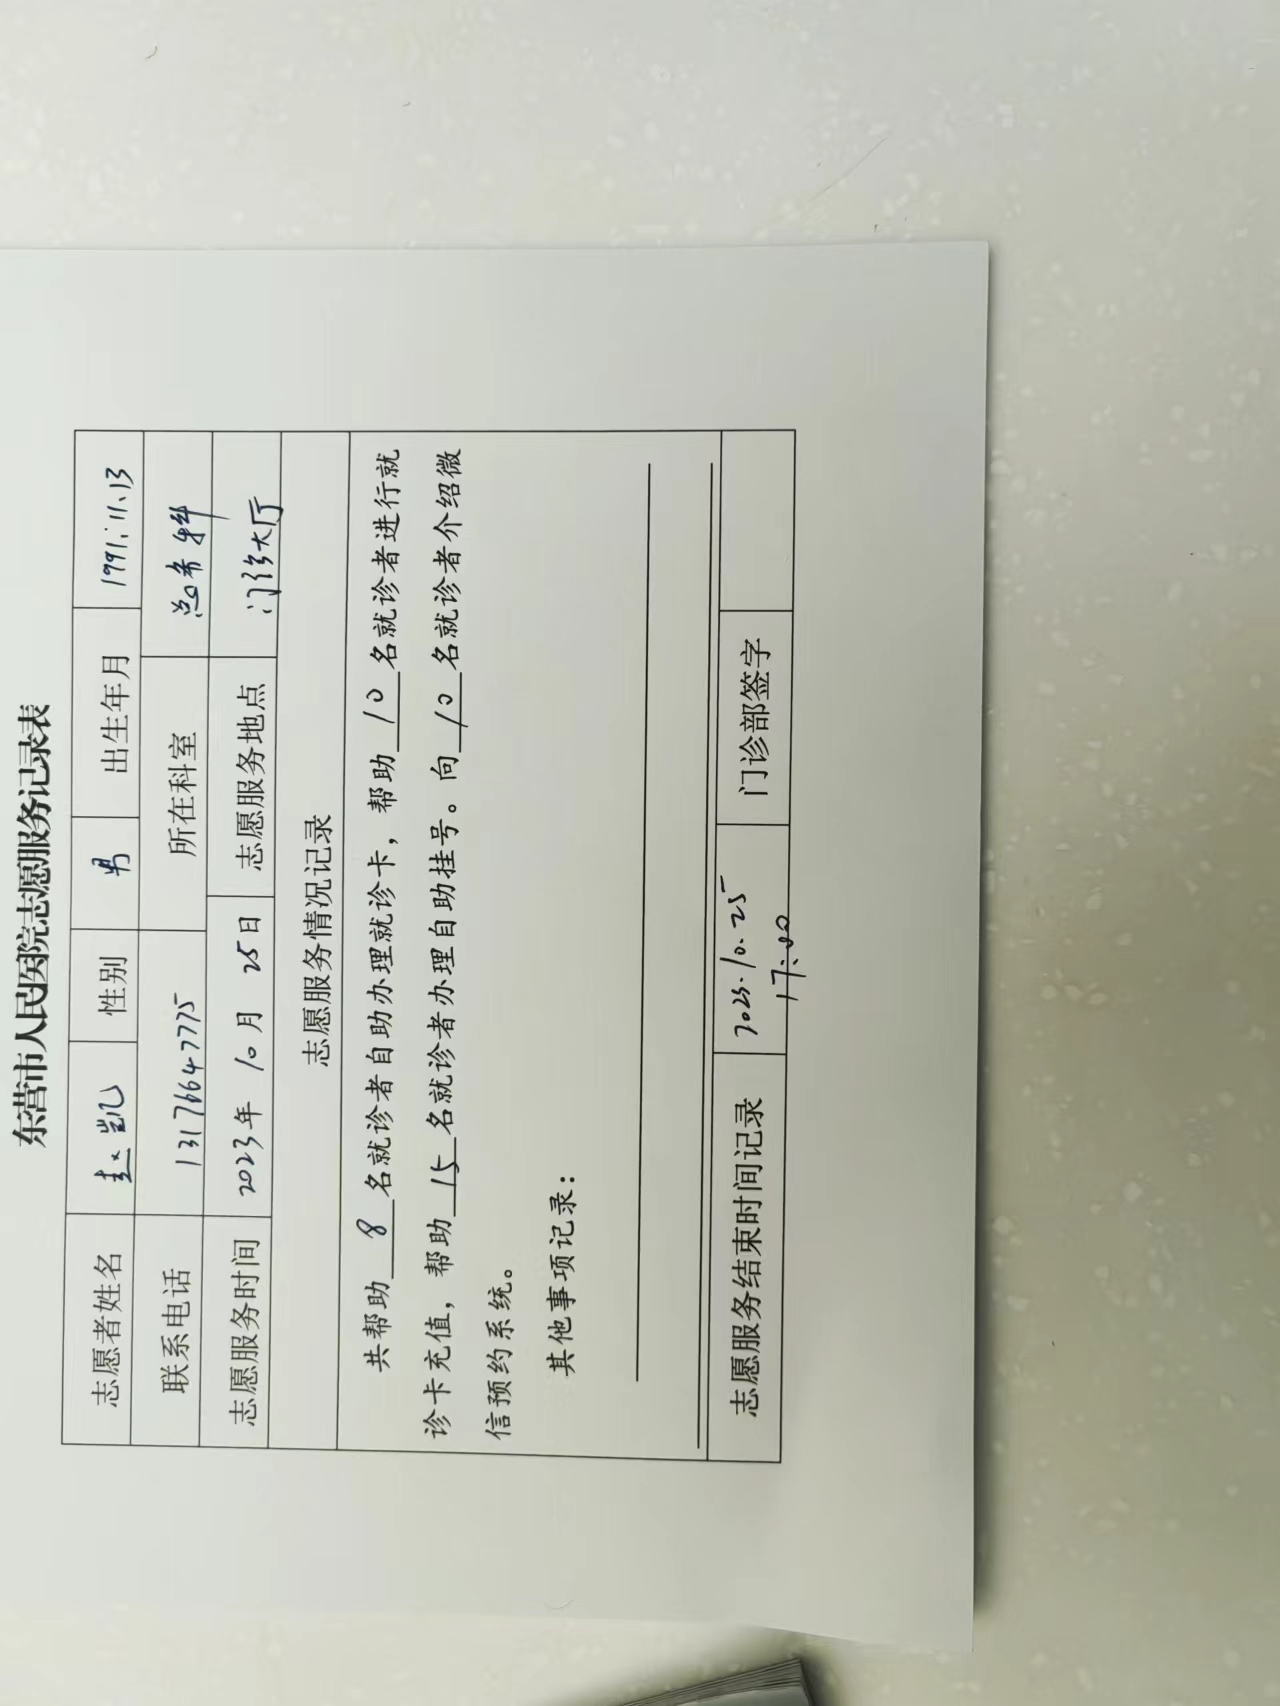 东营市人民医院志愿服务记录表
志愿者姓名 赵凯 性别 男 出生年月 1991.11.13
联系电话 13176647775 所在科室 总务科
志愿服务时间 2023年 10月 25日 志愿服务地点 门诊大厅
志愿服务情况记录
共帮助 8 名就诊者自助办理就诊卡，帮助 10 名就诊者进行就
诊卡充值，帮助 15 名就诊者办理自助挂号。向 10 名就诊者介绍微
信预约系统。
其他事项记录：
志愿服务结束时间记录 2023.10.25 门诊部签字
17:00